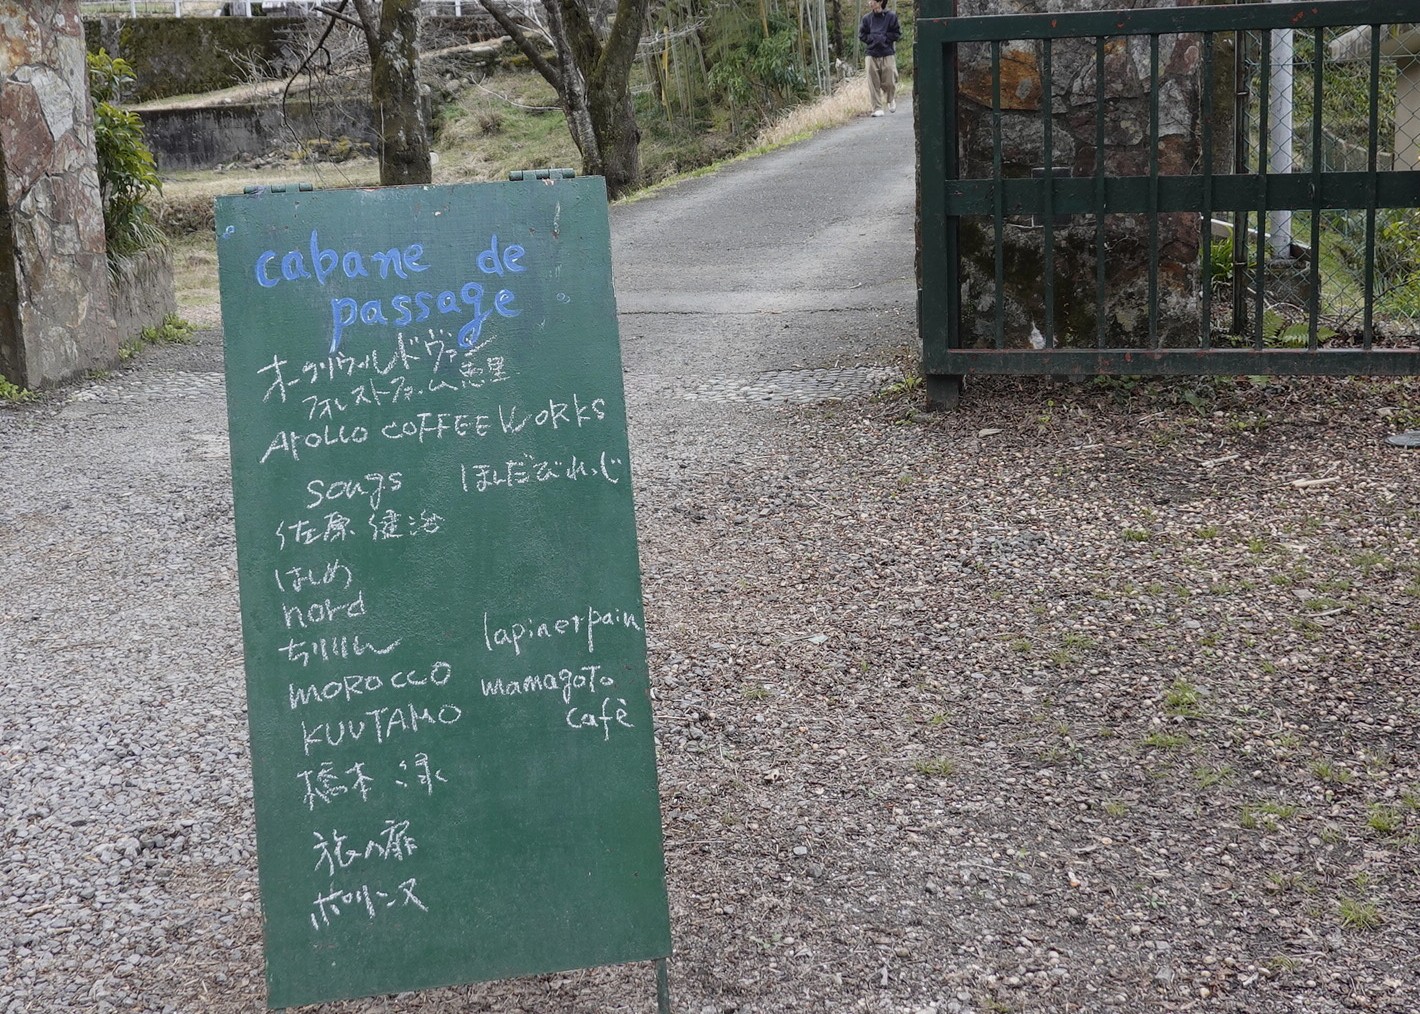 cabane de
passage
オークリウィルドヴァー
フォレストファーム恵里
APOLLO COFFEE WORKS
songs ほんだびれっじ
佐原 健治
はじめ
nord
ちりりん lapinetpain
MOROCCO mamagoto
KUUTAMO cafè
橋本 緑
旅の扉
ポリーヌ